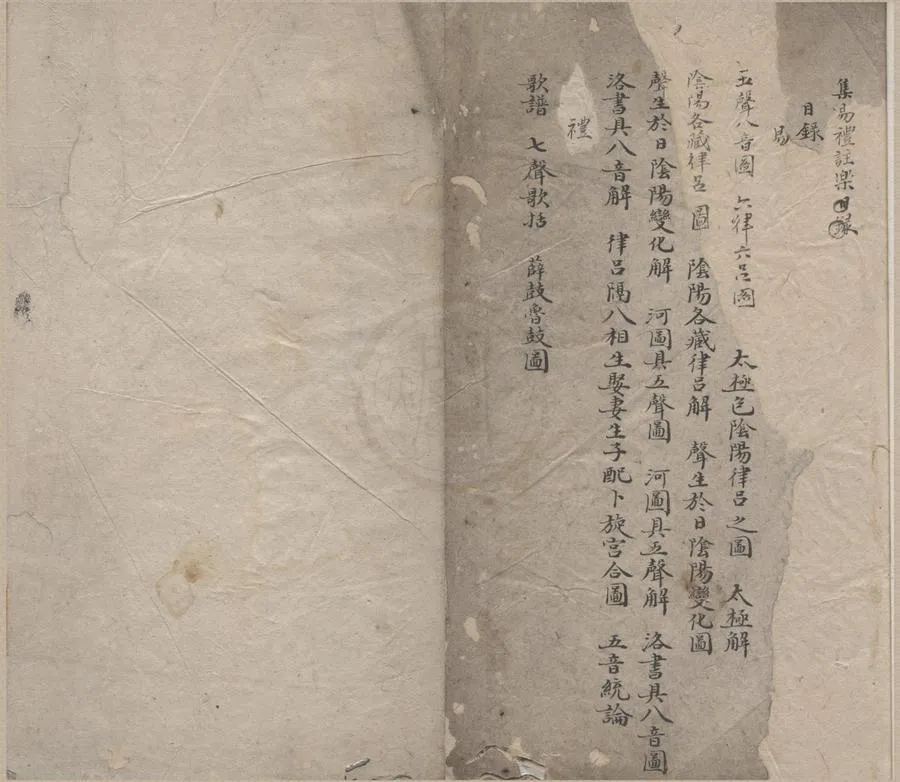 集易禮註樂目錄
目錄
易
五聲八音圖 六律六呂圖 太極包陰陽律呂之圖 太極解
陰陽各藏律呂圖 陰陽各藏律呂解 聲生於日陰陽變化圖
聲生於日陰陽變化解 河圖具五聲圖 河圖具五聲解 洛書具八音圖
洛書具八音解 律呂隔八相生娶妻生子配卜旋宮合圖 五音統論
禮
歌譜 七聲歌括 薛鼓魯鼓圖